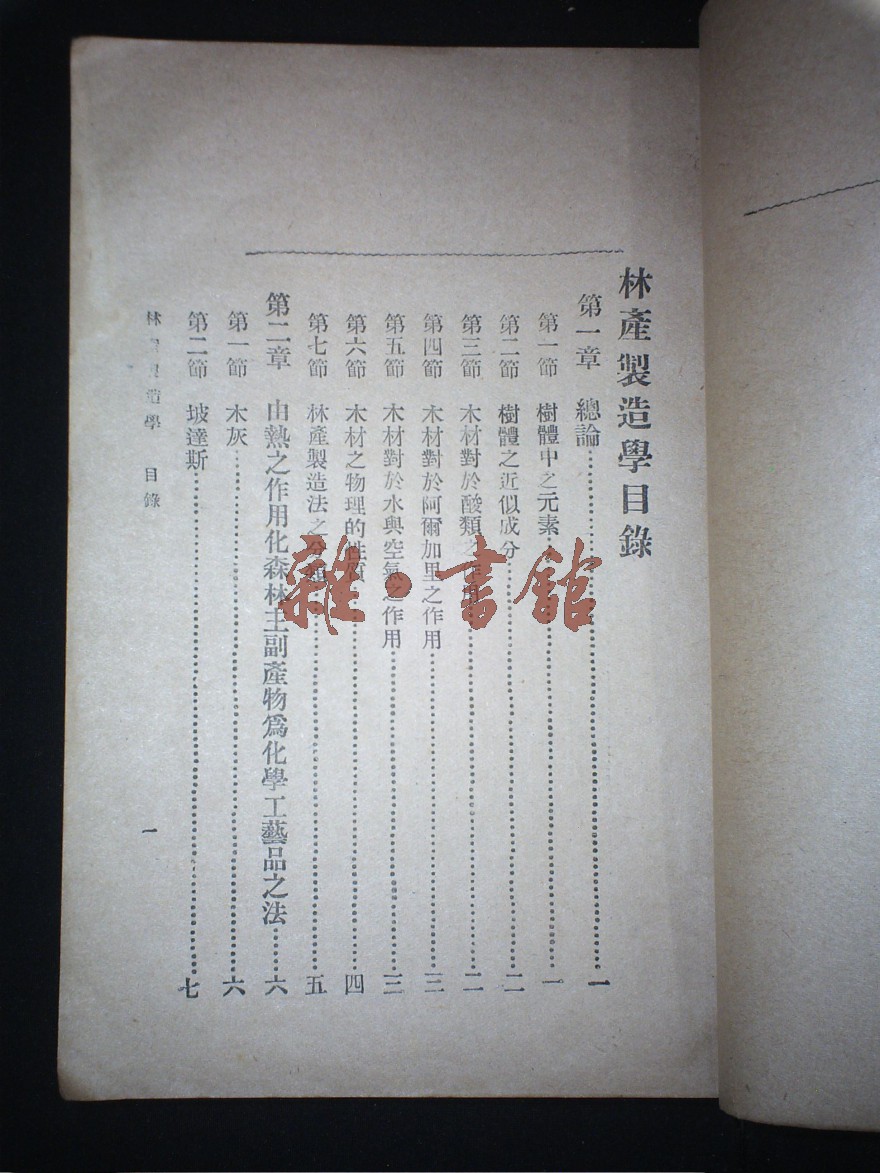 林產製造學目錄
第一章　總論……一
第一節　樹體中之元素……一
第二節　樹體之近似成分……二
第三節　木材對於酸類之作用……二
第四節　木材對於阿爾加里之作用……三
第五節　木材對於水與空氣之作用……三
第六節　木材之物理的性質……四
第七節　林產製造法之分類……五
第二章　由熱之作用化森林主副產物爲化學工藝品之法……六
第一節　木灰……六
第二節　坡達斯……七
林產製造學　目錄
一
雜·書館